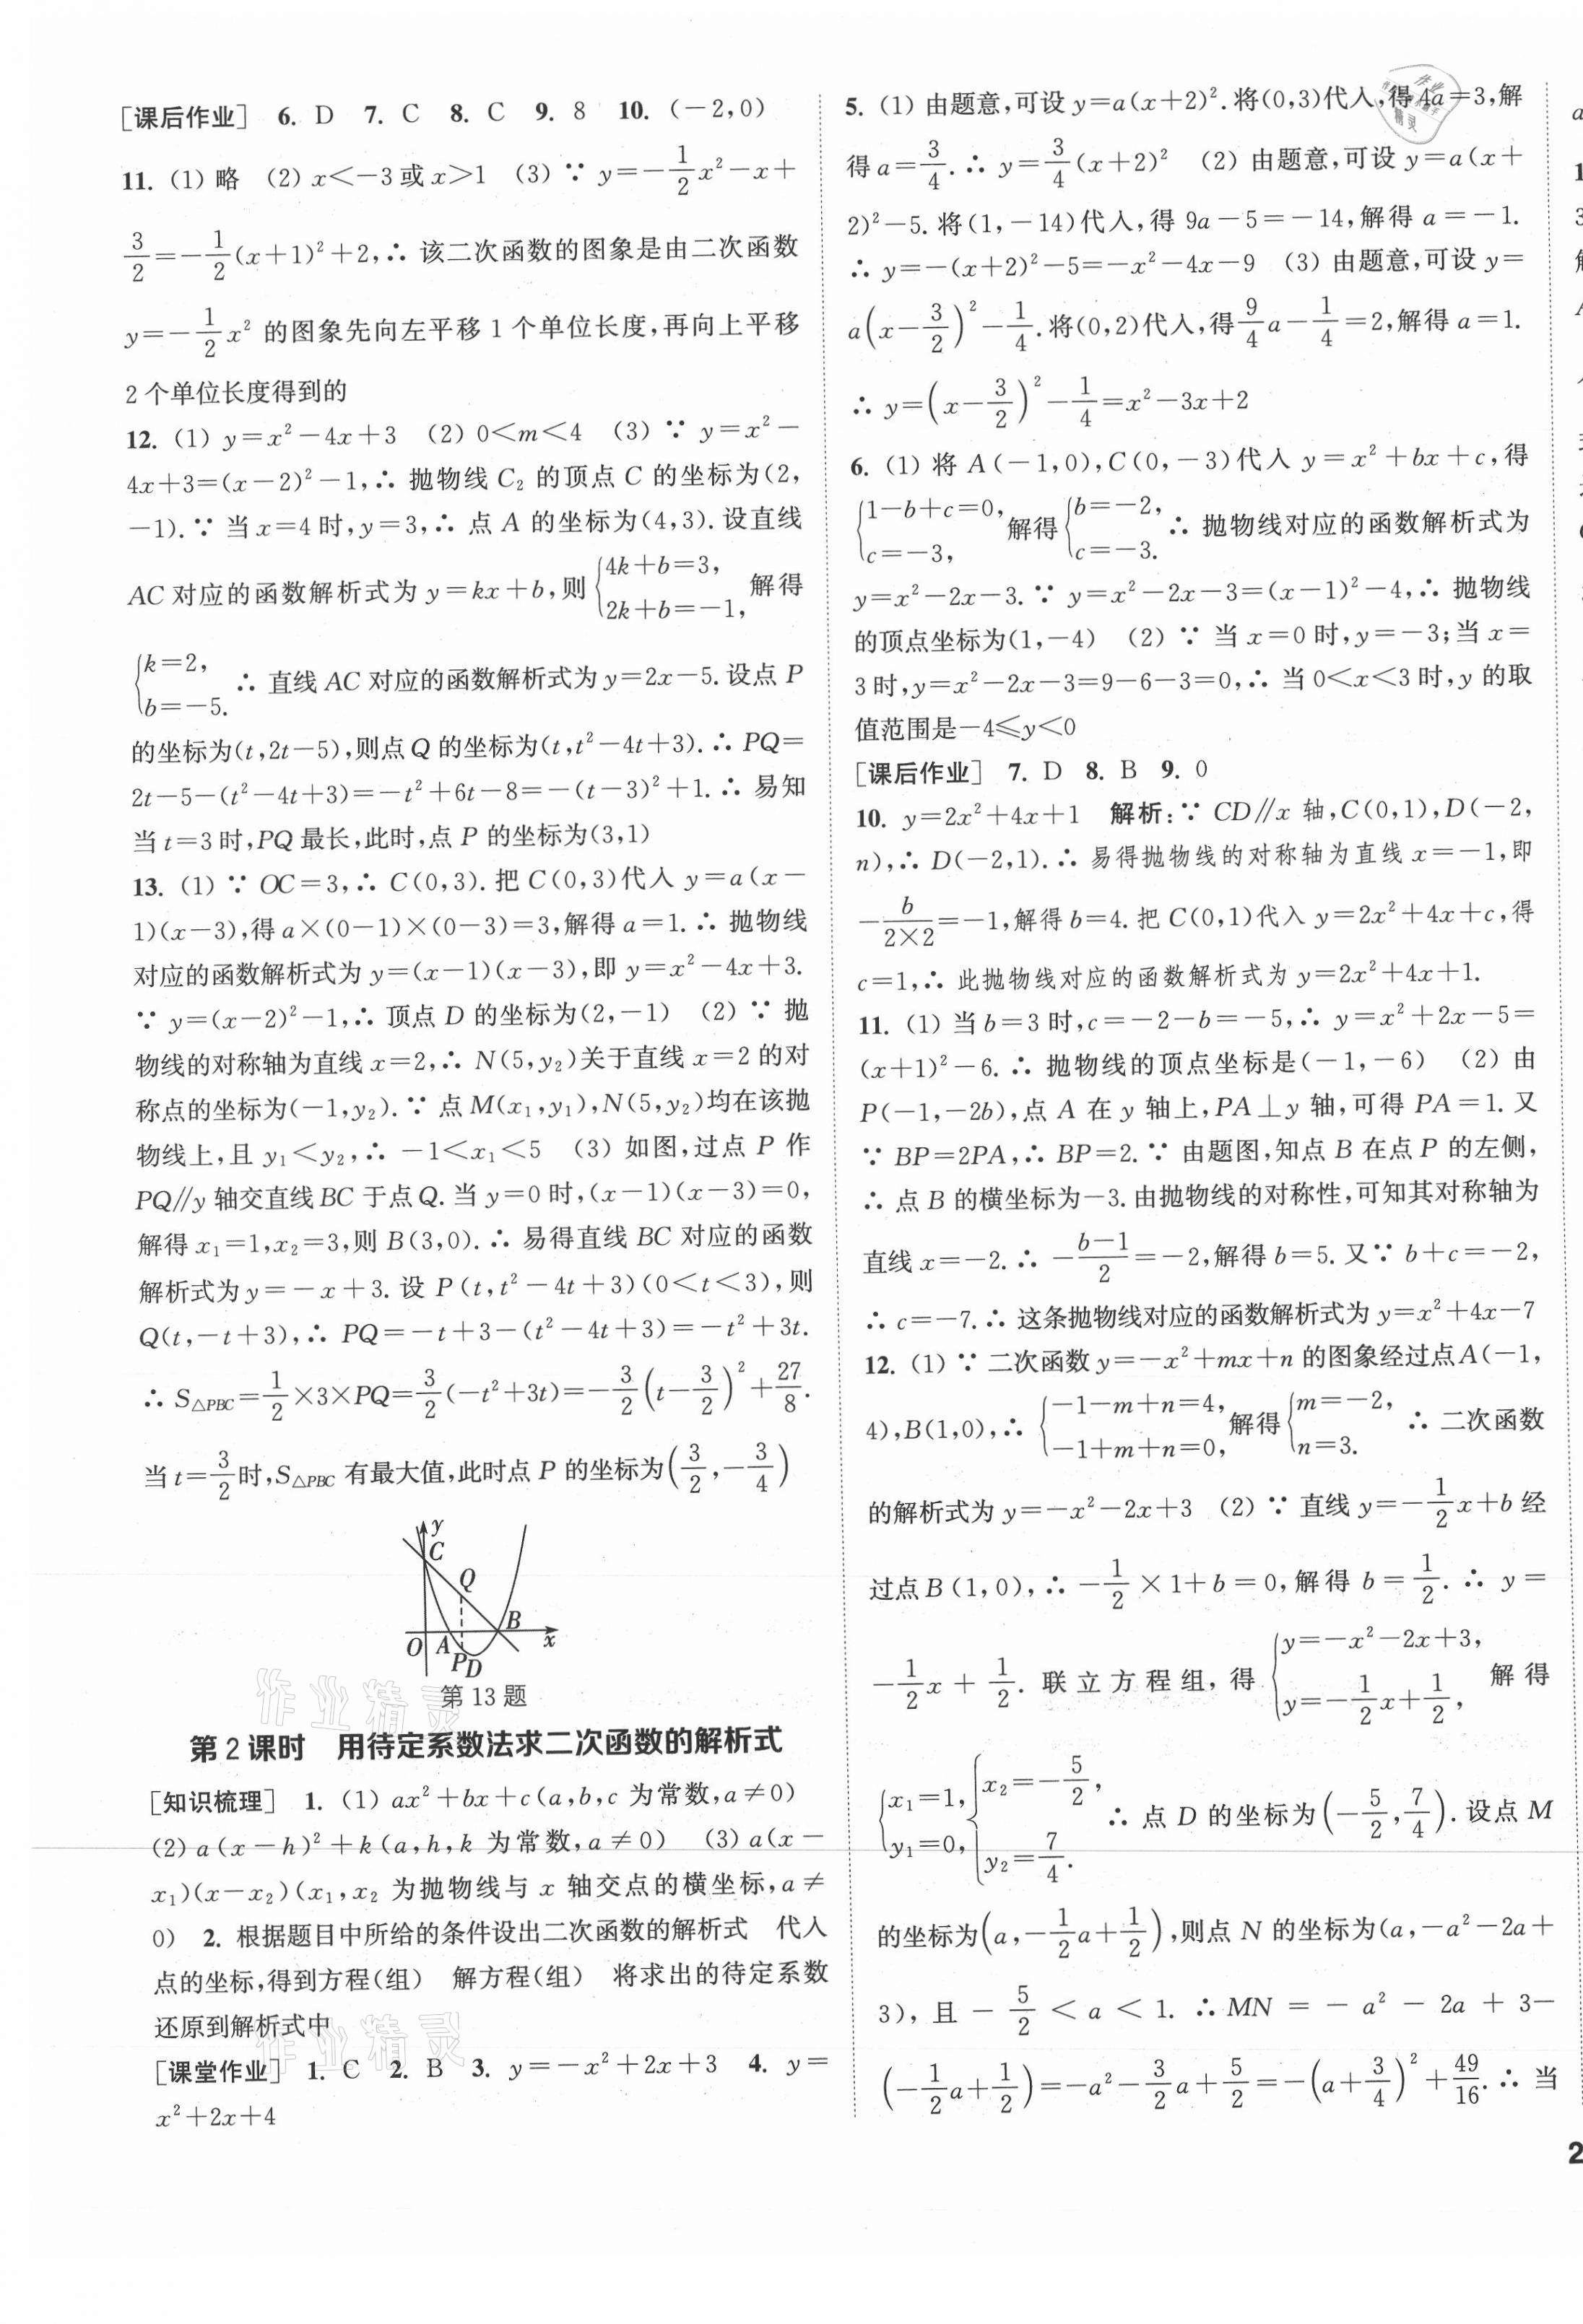 [课后作业] 6. D 7. C 8. C 9. 8 10. (-2,0)
11. (1) 略 (2) x<-3或x>1 (3) ∵ y=-1/2x²-x+
3/2=-1/2(x+1)²+2,∴ 该二次函数的图象是由二次函数
y=-1/2x² 的图象先向左平移 1 个单位长度,再向上平移
2 个单位长度得到的
12. (1) y=x²-4x+3 (2) 0<m<4 (3) ∵ y=x²-
4x+3=(x-2)²-1,∴ 抛物线 C₂ 的顶点 C 的坐标为(2,
-1).∵ 当 x=4 时,y=3,∴ 点 A 的坐标为(4,3).设直线
AC 对应的函数解析式为 y=kx+b,则{4k+b=3, 2k+b=-1,解得
{k=2, b=-5. ∴ 直线 AC 对应的函数解析式为 y=2x-5.设点 P
的坐标为(t,2t-5),则点 Q 的坐标为(t,t²-4t+3).∴ PQ=
2t-5-(t²-4t+3)=-t²+6t-8=-(t-3)²+1.∴ 易知
当 t=3 时,PQ 最长,此时,点 P 的坐标为(3,1)
13. (1) ∵ OC=3,∴ C(0,3).把 C(0,3)代入 y=a(x-
1)(x-3),得 a×(0-1)×(0-3)=3,解得 a=1.∴ 抛物线
对应的函数解析式为 y=(x-1)(x-3),即 y=x²-4x+3.
∵ y=(x-2)²-1,∴ 顶点 D 的坐标为(2,-1) (2) ∵ 抛
物线的对称轴为直线 x=2,∴ N(5,y₂)关于直线 x=2 的对
称点的坐标为(-1,y₂).∵ 点 M(x₁,y₁),N(5,y₂)均在该抛
物线上,且 y₁<y₂,∴ -1<x₁<5 (3) 如图,过点 P 作
PQ∥y 轴交直线 BC 于点 Q.当 y=0 时,(x-1)(x-3)=0,
解得 x₁=1,x₂=3,则 B(3,0).∴ 易得直线 BC 对应的函数
解析式为 y=-x+3.设 P(t,t²-4t+3)(0<t<3),则
Q(t,-t+3),∴ PQ=-t+3-(t²-4t+3)=-t²+3t.
∴ S△PBC=1/2×3×PQ=3/2(-t²+3t)=-3/2(t-3/2)²+27/8.
当 t=3/2时,S△PBC 有最大值,此时点 P 的坐标为(3/2,-3/4)
y
C
Q
B
O A x
P D
第 13 题
第 2 课时 用待定系数法求二次函数的解析式
[知识梳理] 1. (1) ax²+bx+c(a,b,c 为常数,a≠0)
(2) a(x-h)²+k(a,h,k 为常数,a≠0) (3) a(x-
x₁)(x-x₂)(x₁,x₂ 为抛物线与 x 轴交点的横坐标,a≠
0) 2. 根据题目中所给的条件设出二次函数的解析式 代入
点的坐标,得到方程(组) 解方程(组) 将求出的待定系数
还原到解析式中
[课堂作业] 1. C 2. B 3. y=-x²+2x+3 4. y=
x²+2x+4
5. (1) 由题意,可设 y=a(x+2)².将(0,3)代入,得 4a=3,解
得 a=3/4.∴ y=3/4(x+2)² (2) 由题意,可设 y=a(x+
2)²-5.将(1,-14)代入,得 9a-5=-14,解得 a=-1.
∴ y=-(x+2)²-5=-x²-4x-9 (3) 由题意,可设 y=
a(x-3/2)²-1/4.将(0,2)代入,得9/4a-1/4=2,解得 a=1.
∴ y=(x-3/2)²-1/4=x²-3x+2
6. (1) 将 A(-1,0),C(0,-3)代入 y=x²+bx+c,得
{1-b+c=0, c=-3,解得{b=-2, c=-3. ∴ 抛物线对应的函数解析式为
y=x²-2x-3.∵ y=x²-2x-3=(x-1)²-4,∴ 抛物线
的顶点坐标为(1,-4) (2) ∵ 当 x=0 时,y=-3;当 x=
3 时,y=x²-2x-3=9-6-3=0,∴ 当 0<x<3 时,y 的取
值范围是-4≤y<0
[课后作业] 7. D 8. B 9. 0
10. y=2x²+4x+1 解析:∵ CD∥x 轴,C(0,1),D(-2,
n),∴ D(-2,1).∴ 易得抛物线的对称轴为直线 x=-1,即
-b/(2×2)=-1,解得 b=4.把 C(0,1)代入 y=2x²+4x+c,得
c=1,∴ 此抛物线对应的函数解析式为 y=2x²+4x+1.
11. (1) 当 b=3 时,c=-2-b=-5,∴ y=x²+2x-5=
(x+1)²-6.∴ 抛物线的顶点坐标是(-1,-6) (2) 由
P(-1,-2b),点 A 在 y 轴上,PA⊥y 轴,可得 PA=1.又
∵ BP=2PA,∴ BP=2.∵ 由题图,知点 B 在点 P 的左侧,
∴ 点 B 的横坐标为-3.由抛物线的对称性,可知其对称轴为
直线 x=-2.∴ -(b-1)/2=-2,解得 b=5.又∵ b+c=-2,
∴ c=-7.∴ 这条抛物线对应的函数解析式为 y=x²+4x-7
12. (1) ∵ 二次函数 y=-x²+mx+n 的图象经过点 A(-1,
4),B(1,0),∴ {-1-m+n=4, -1+m+n=0,解得{m=-2, n=3. ∴ 二次函数
的解析式为 y=-x²-2x+3 (2) ∵ 直线 y=-1/2x+b 经
过点 B(1,0),∴ -1/2×1+b=0,解得 b=1/2.∴ y=
-1/2x+1/2.联立方程组,得{y=-x²-2x+3, y=-1/2x+1/2,解得
{x₁=1, y₁=0,{x₂=-5/2, y₂=7/4. ∴ 点 D 的坐标为(-5/2,7/4).设点 M
的坐标为(a,-1/2a+1/2),则点 N 的坐标为(a,-a²-2a+
3),且-5/2<a<1.∴MN=-a²-2a+3-
(-1/2a+1/2)=-a²-3/2a+5/2=-(a+3/4)²+49/16.∴ 当
作业精灵
作业精灵
2